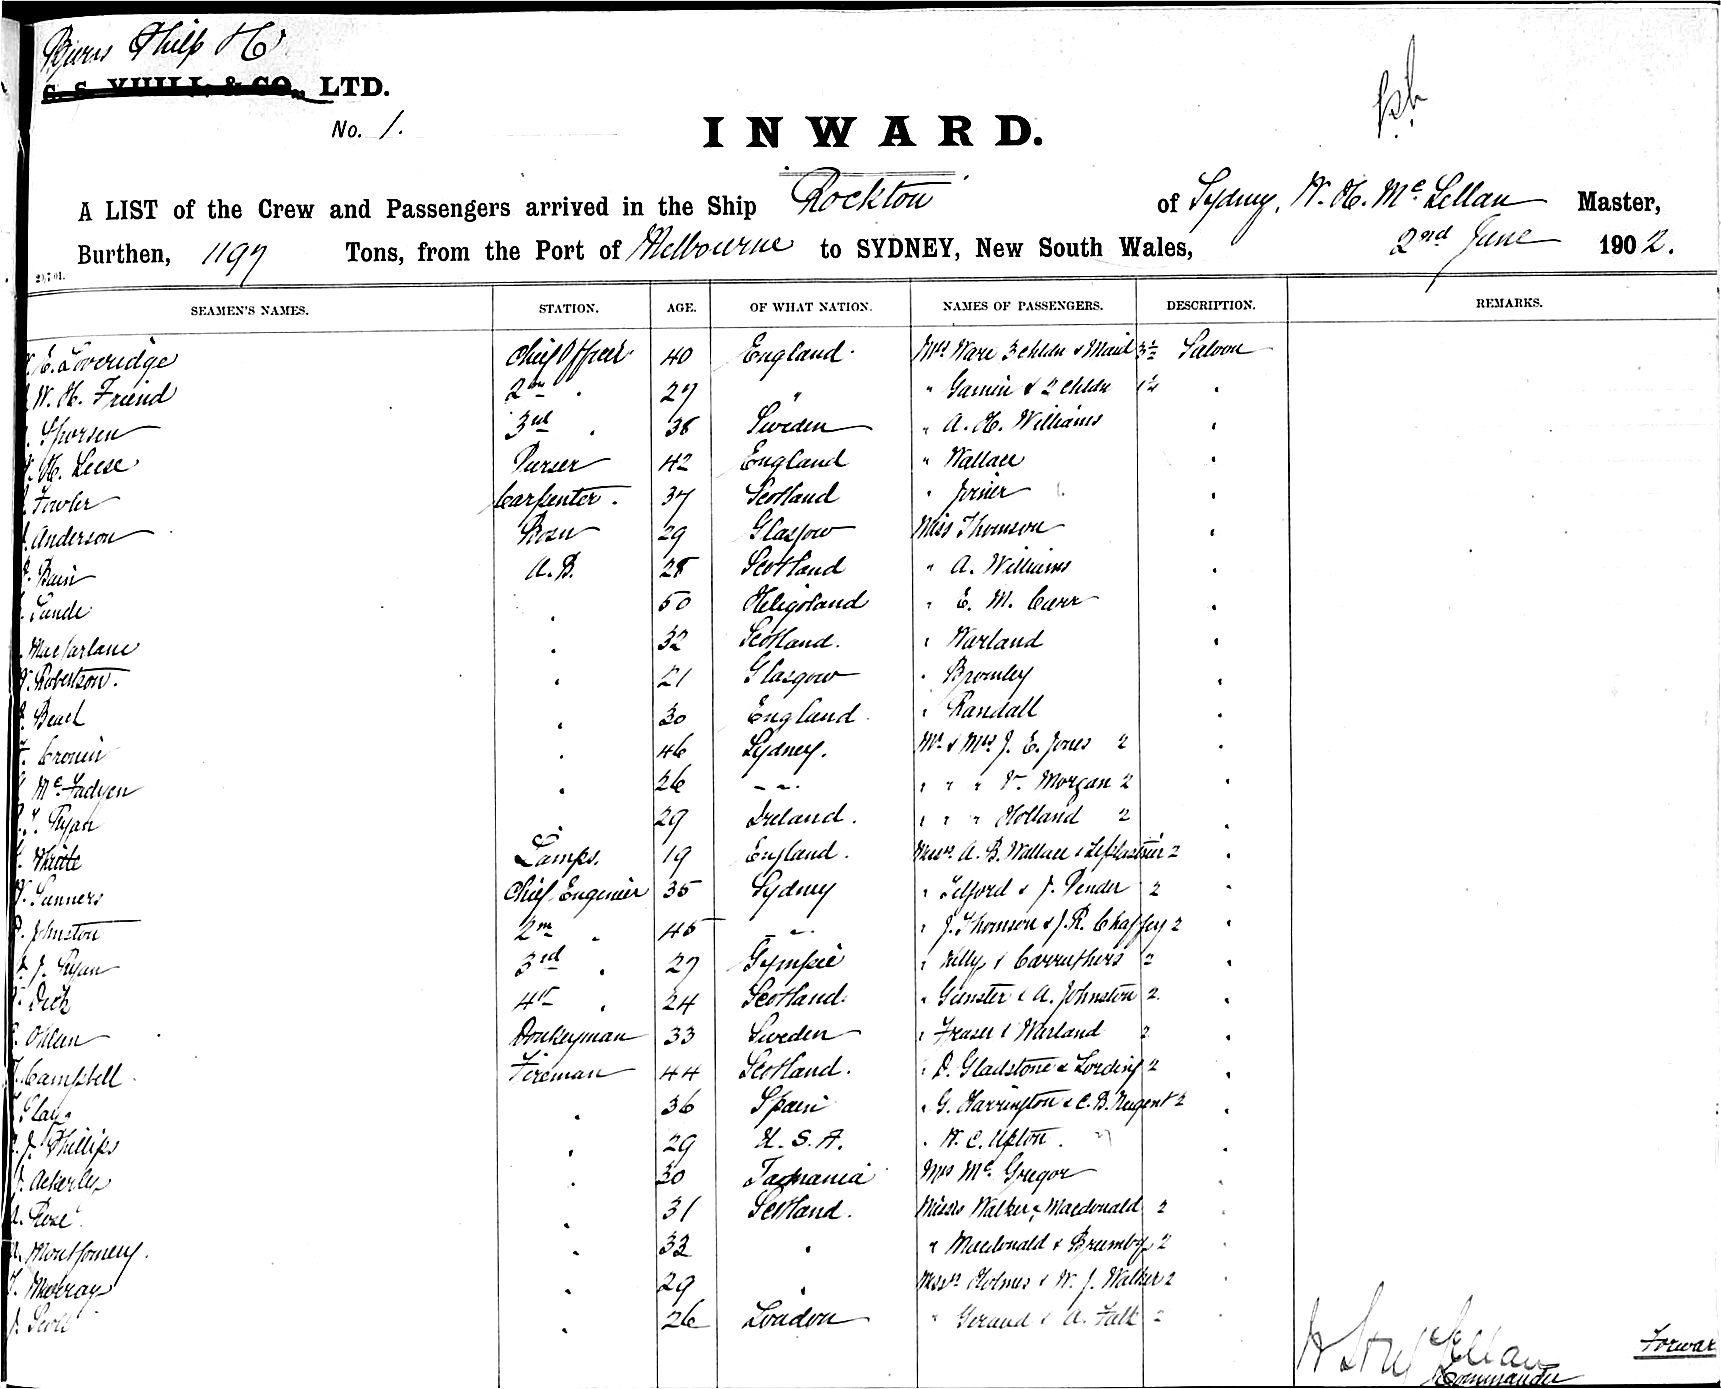 Burns Philp & Co
S. S. YUILL & CO., LTD.
No. 1.
INWARD.
A LIST of the Crew and Passengers arrived in the Ship Rockton of Sydney, W. H. McLellan Master,
Burthen, 1197 Tons, from the Port of Melbourne to SYDNEY, New South Wales, 2nd June 1902.
SEAMEN'S NAMES. STATION. AGE. OF WHAT NATION. NAMES OF PASSENGERS. DESCRIPTION. REMARKS.
E. Loveridge Chief Officer 40 England. Mrs Ware 3 chldn & Maid 3½ Saloon
W. H. Friend 2nd " 27 " " Gamin & 2 chldn "
Thorsen 3rd " 38 Sweden " A. H. Williams "
H. Leese Purser 42 England " Wallace "
Fowler Carpenter. 37 Scotland " Joiner "
Anderson Bosn 29 Glasgow Miss Thomson "
Bain A.B. 28 Scotland " A. Williams "
Sunde " 50 Heligoland " E. M. Carr "
Macfarlane " 32 Scotland. " Warland "
W. Robertson. " 21 Glasgow " Bromley "
Beach " 30 England. " Randall "
Cronin " 46 Sydney. Mr & Mrs J. E. Jones 2 "
McFadyen " 26 -"-. " " " Morgan 2 "
T. Ryan " 29 Ireland. " " " Holland 2 "
White Lamps. 19 England. Messrs A. B. Wallace & Leplastrier 2 "
Sunners Chief Engenier 35 Sydney " Telford & J. Pender 2 "
Johnston 2nd " 45 -"-. " J. Thomson & J. R. Chaffey 2 "
J. Ryan 3rd " 27 Gympie " Kelly & Carruthers 2 "
Dick 4th " 24 Scotland. " Gunster & A. Johnston 2 "
Ohlen Donkeyman 33 Sweden " Fraser & Warland 2 "
Campbell Fireman 44 Scotland. " D. Gladstone & Lording 2 "
" 36 Spain " G. Harrington & C. B. Nugent 2 "
J. Phillips " 29 U.S.A. " W. C. Upton. "
J. Ackerley " 30 Tasmania Mrs McGregor "
Rose " 31 Scotland. Misses Walker & Macdonald 2 "
Montgomery. " 32 " " Macdonald & Brumby 2 "
Murray " 29 " Messrs Holmes & W. J. Walker 2 "
J. Scott " 26 London " Geraud & A. Falk 2 "
W H McLellan
Commander
Forwar